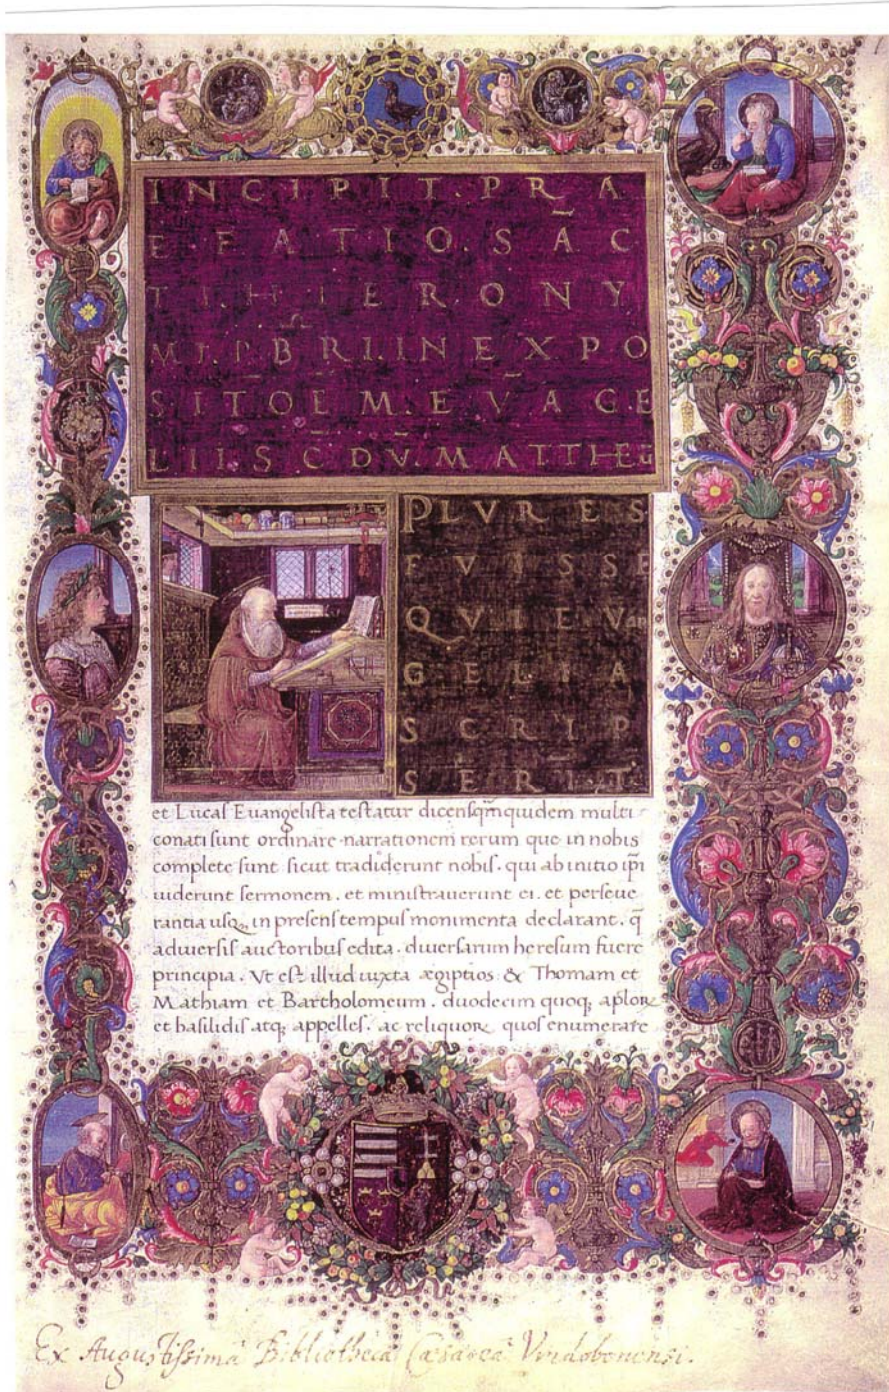 INCIPIT·PRA
EFATIO·SAC
TI·HIERONY
MI·PBRI·IN EXPO
SITOEM·EVAGE
LII·SCDV·MATTHEu
PLVRES
FVISSE
QVI EVan
GELIA
SCRIP
SERIT·
et Lucas Euangelista testatur dicens qm̄ quidem multi
conati sunt ordinare narrationem rerum que in nobis
complete sunt sicut tradiderunt nobis. qui ab initio ip̄i
uiderunt sermonem. et ministrauerunt ei. et perseue
rantia usq; in presens tempus monimenta declarant. q̄
a diuersis auctoribus edita. diuersarum heresum fuere
principia. Vt est illud iuxta ægiptios & Thomam et
Mathiam et Bartholomeum. duodecim quoq; aplorꝝ
et basilidis atq; appelles. ac reliquorꝝ quos enumerare
Ex Augustissimâ Bibliothecâ Cæsareâ Vindobonensi.